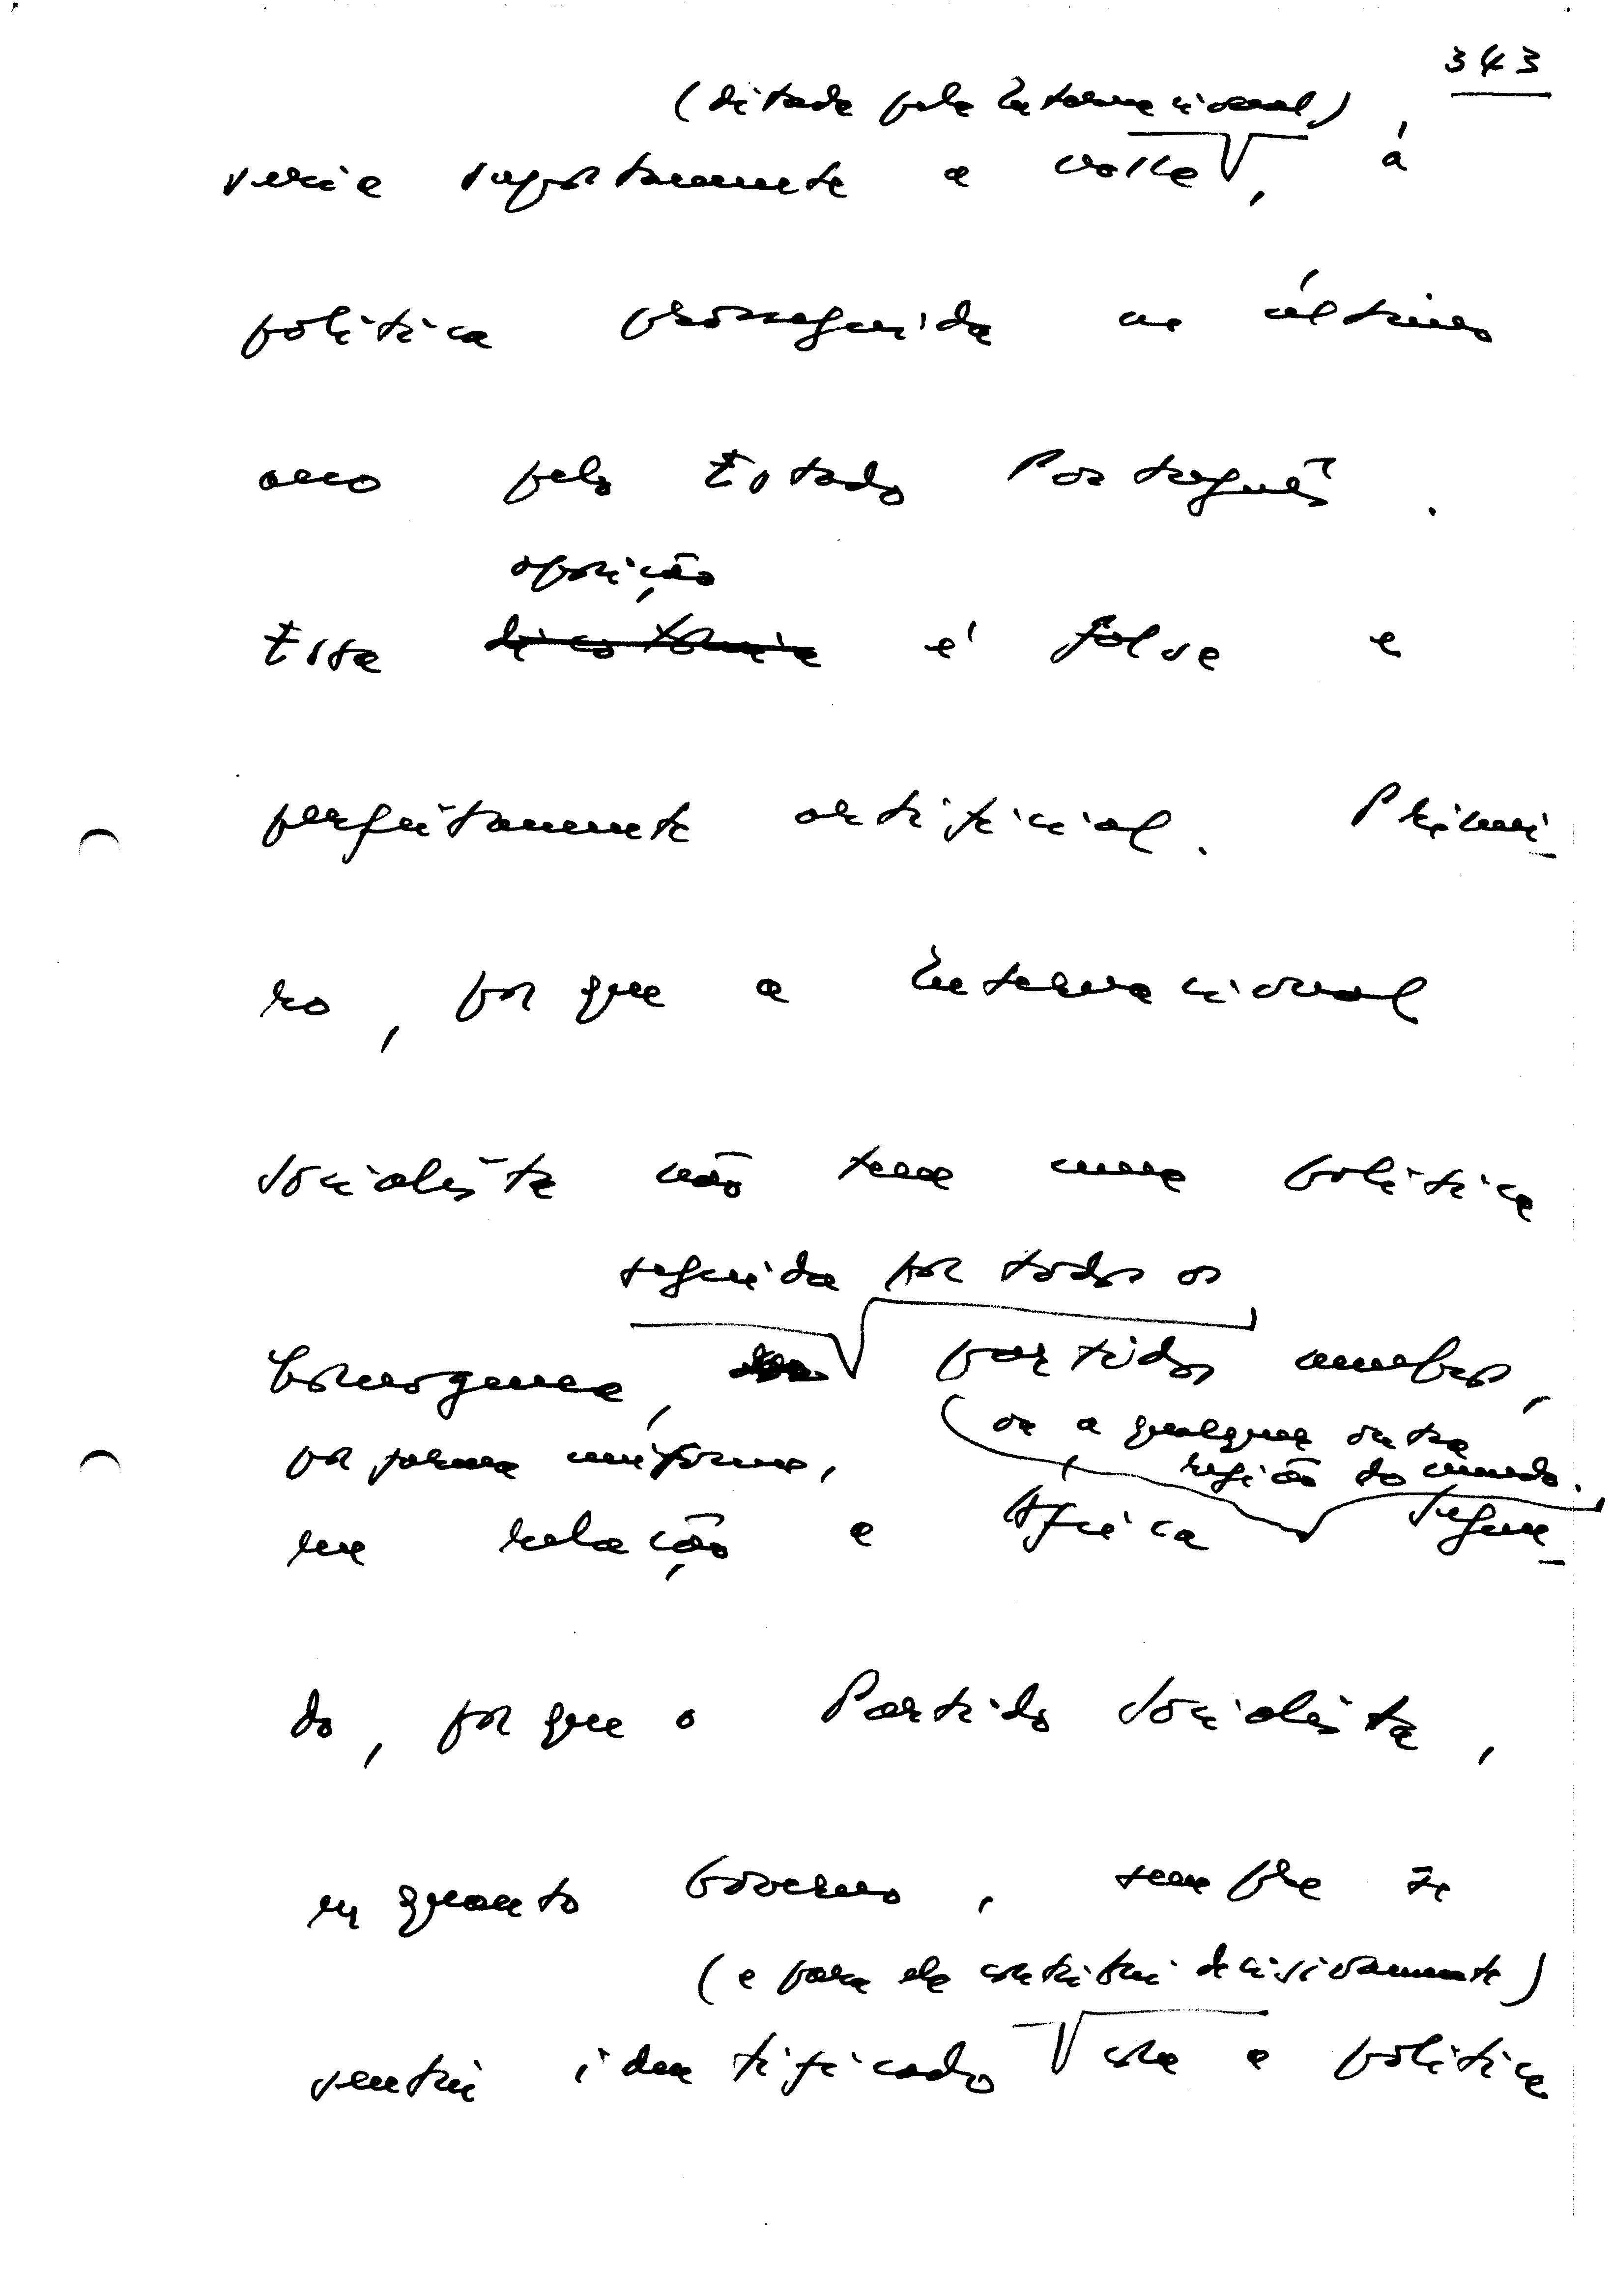 343
(ditada pela Internacional)
seria supostamente a nossa, à
política prosseguida nos últimos
anos pelo Estado Português.
oposição
Essa dicotomia é falsa e
perfeitamente artificial. Primei-
ro, porque a Internacional
Socialista não tem uma política
seguida por todos os
homogenea, partidos membros,
ou a qualquer outra
por forma uniforme, região do mundo.
em relação a África Segun-
do, porque o Partido Socialista,
enquanto Governo, sempre se
(e para ela contribui decisivamente)
sentiu identificado com a política